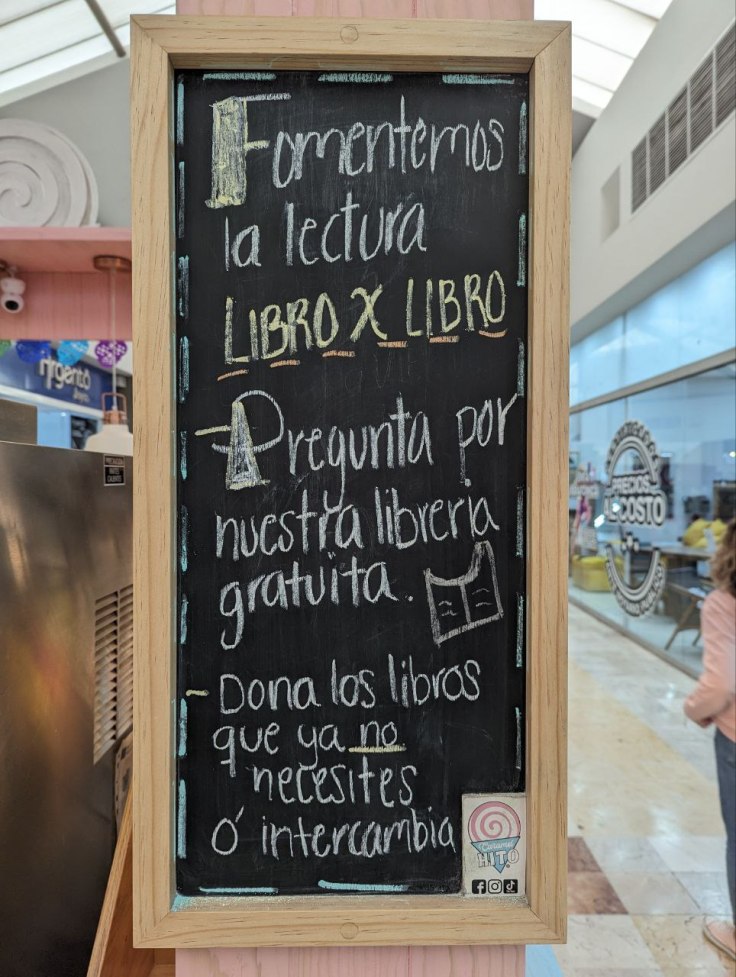 Fomentemos
la lectura
LIBRO X LIBRO
- Pregunta por
nuestra librería
gratuïta.
- Dona los libros
que ya no
necesites
Ó intercambia
Caramel
HITO
PRECIOS
DE COSTO